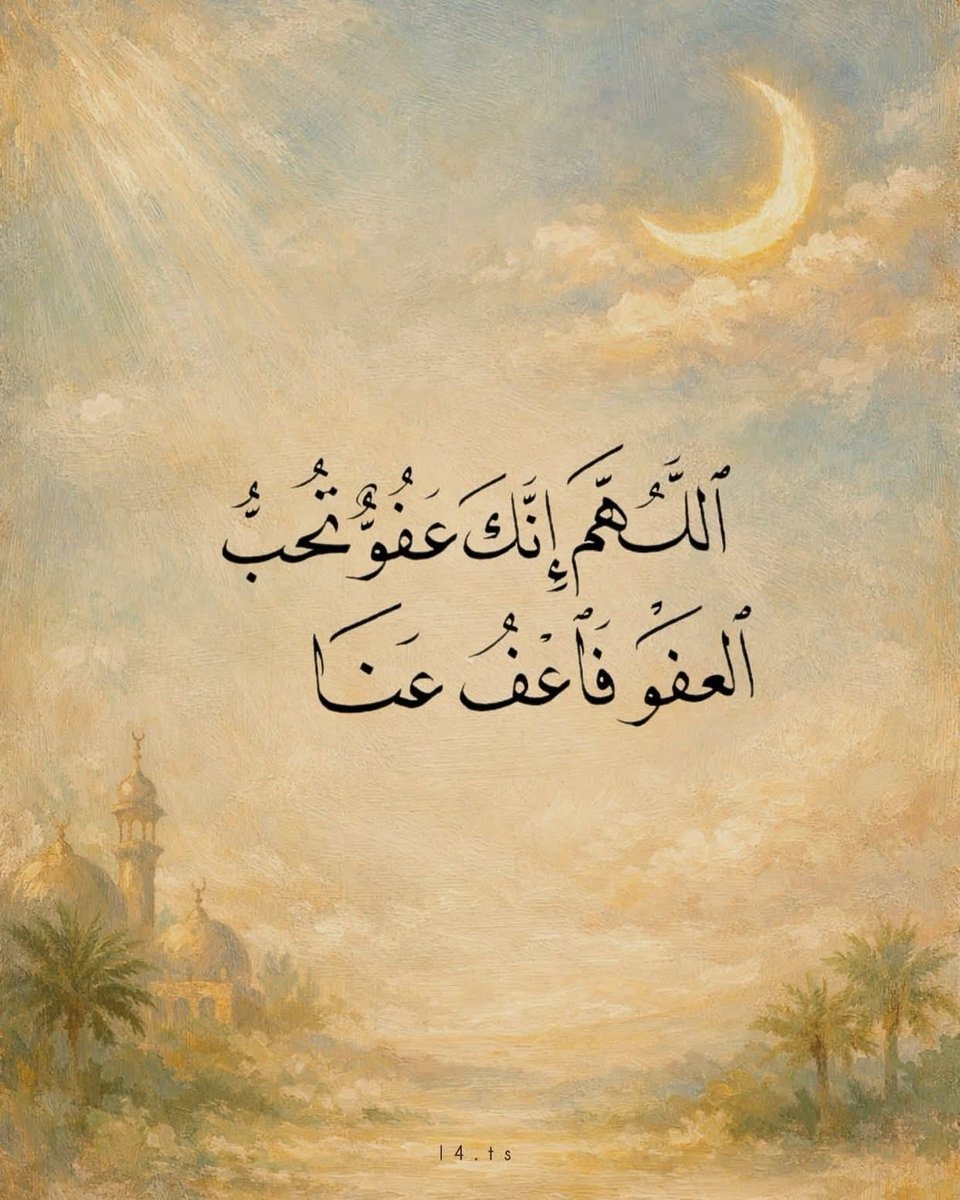 ٱللَّهُمَّ إِنَّكَ عَفُوٌّ تُحِبُّ
ٱلْعَفْوَ فَٱعْفُ عَنَا
l4.ts